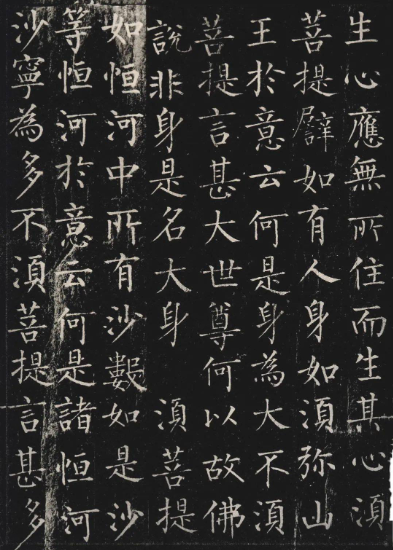 生心應無所住而生其心須
菩提譬如有人身如須弥山
王於意云何是身為大不須
菩提言甚大世尊何以故佛
說非身是名大身 須菩提
如恒河中所有沙數如是沙
等恒河於意云何是諸恒河
沙寧為多不須菩提言甚多